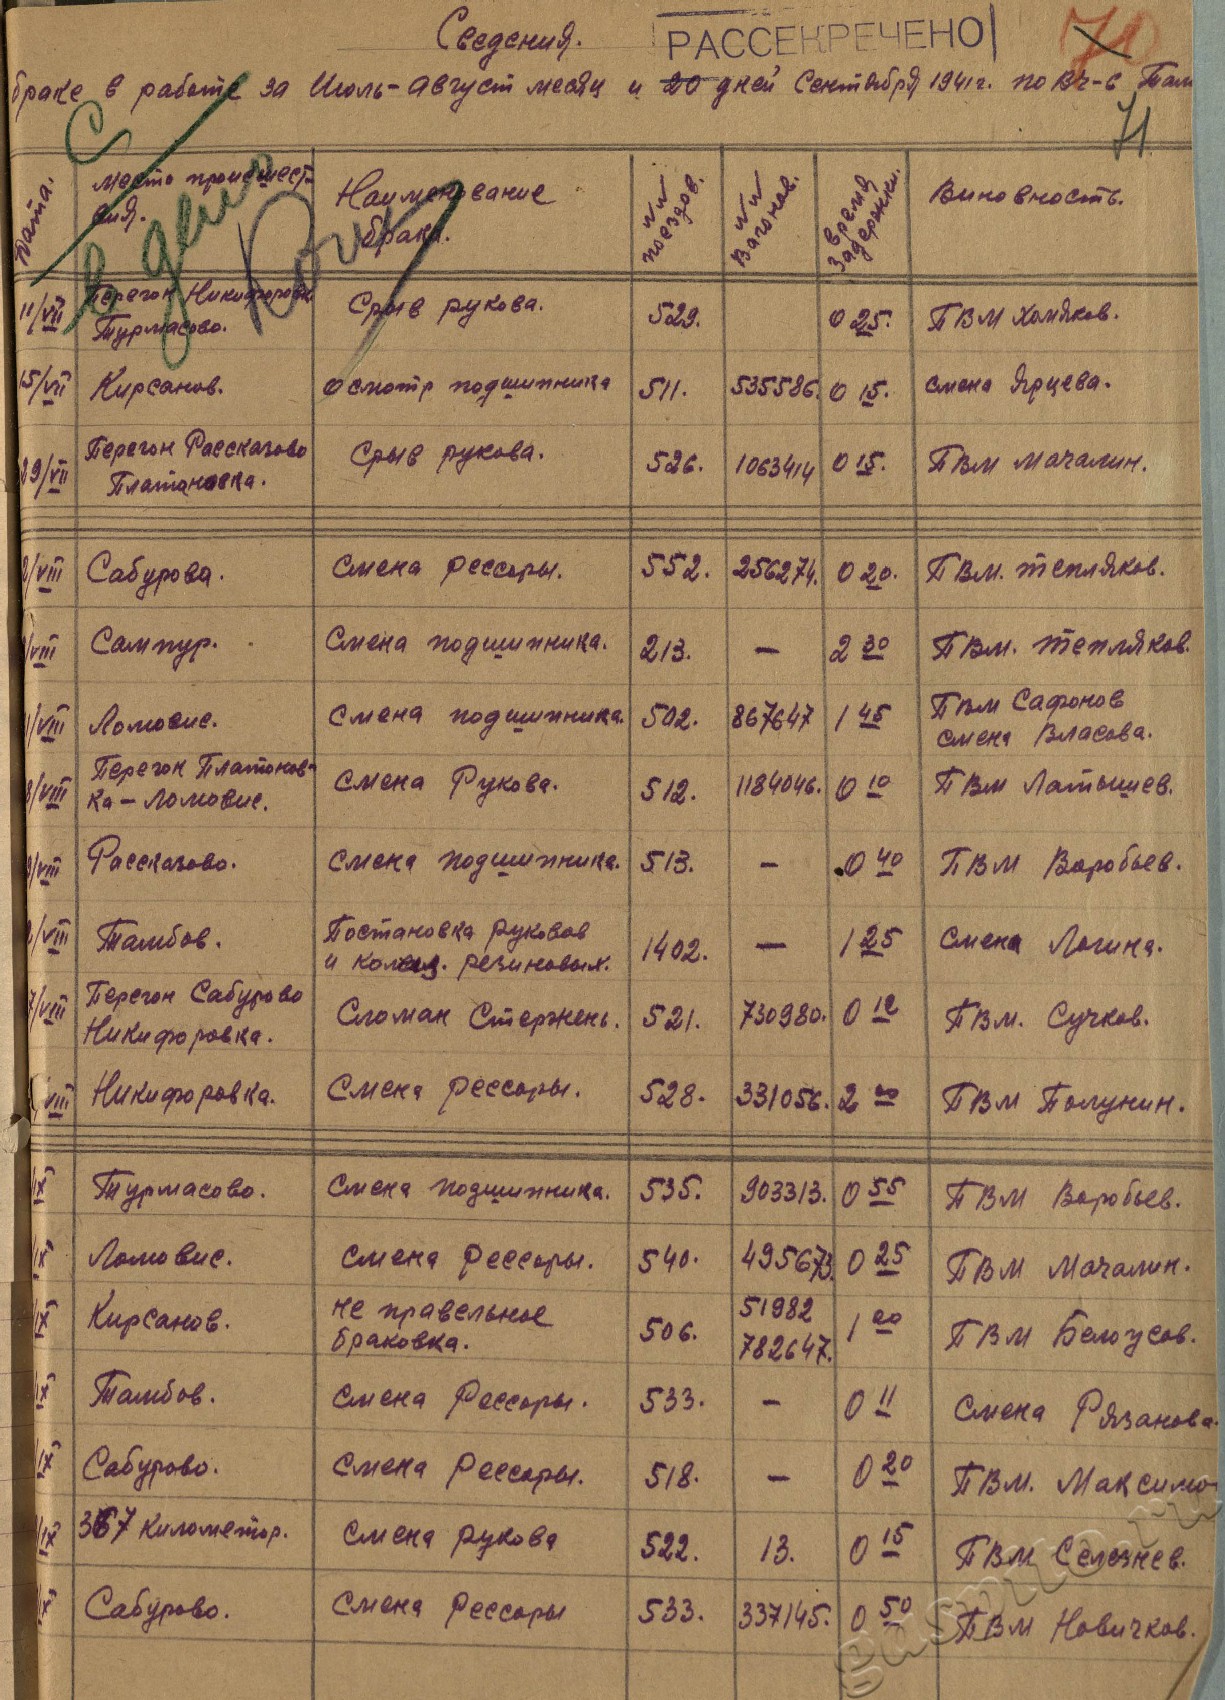 Сведения.
РАССЕКРЕЧЕНО
70
браке в работе за Июль-Август месяц и 20 дней Сентября 1941г. по ВЧ-6 Там
71
С
в дело
Дата. Место происшест- Наименование №№ №№ Время Виновность.
вия. брака. поездов. Вагонов. Задержки.
11/VII Перегон Никифоровка Срыв рукова. 529. 0 25. ПВМ Хомяков.
Турмасово.
15/VII Кирсанов. осмотр подшипника 511. 535586. 0 15. смена Ярцева.
29/VII Перегон Рассказово Срыв рукова. 526. 1063414 0 15. ПВМ Мачалин.
Платоновка.
/VIII Сабурова. Смена Рессоры. 552. 256274. 0 20. ПВМ. Тепляков.
/VIII Сампур. Смена подшипника. 213. — 2 30 ПВМ. Тепляков.
/VIII Ломовис. Смена подшипника. 502. 867647 1 45 ПВМ Сафонов
смена Власова.
8/VIII Перегон Платонов- Смена Рукова. 512. 1184046. 0 10 ПВМ Латышев.
ка - Ломовис.
9/VIII Рассказово. Смена подшипника. 513. — 0 40 ПВМ Воробьев.
/VIII Тамбов. Постановка руковов 1402. — 1 25 Смена Логина.
и колец. резиновых.
7/VIII Перегон Сабурово Сломан Стержень. 521. 730980. 0 ПВМ. Сучков.
Никифоровка.
/VIII Никифоровка. Смена Рессоры. 528. 331056. 2 00 ПВМ Полунин.
IX Турмасово. Смена подшипника. 535. 903313. 0 55 ПВМ Воробьев.
IX Ломовис. Смена Рессоры. 540. 495673. 0 25 ПВМ Мачалин.
IX Кирсанов. не правельное 506. 51982 1 00 ПВМ Белоусов.
браковка. 782647.
IX Тамбов. Смена Рессоры. 533. — 0 11 Смена Рязанова.
IX Сабурово. Смена Рессоры. 518. — 0 20 ПВМ. Максимо
IX 367 километор. Смена рукова 522. 13. 0 15 ПВМ Селезнев.
IX Сабурово. Смена Рессоры 533. 337145. 0 50 ПВМ Новичков.